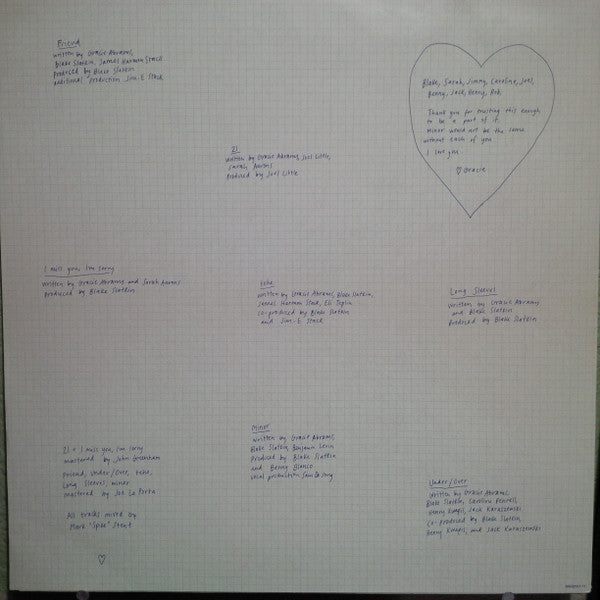 Friend
written by Gracie Abrams,
Blake Slatkin, James Harmon Stack
Produced by Blake Slatkin
additional production Jim-E Stack
Blake, Sarah, Jimmy, Caroline, Joel,
Benny, Jack, Henry, Rob,
Thank you for trusting this enough
to be a part of it.
minor would not be the same
without each of you
I love you
♡ Gracie
21
written by Gracie Abrams, Joel Little,
Sarah Aarons
Produced by Joel Little
I miss you, I'm sorry
written by Gracie Abrams and Sarah Aarons
Produced by Blake Slatkin
tehe
written by Gracie Abrams, Blake Slatkin,
James Harmon Stack, Eli Teplin
co-produced by Blake Slatkin
and Jim-E Stack
Long Sleeves
written by Gracie Abrams
and Blake Slatkin
Produced by Blake Slatkin
21 + I miss you, I'm sorry
mastered by John Greenham
Friend, Under/Over, tehe,
Long Sleeves, minor
mastered by Joe La Porta
All tracks mixed by
Mark "Spike" Stent
♡
Minor
written by Gracie Abrams,
Blake Slatkin, Benjamin Levin
Produced by Blake Slatkin
and Benny Blanco
vocal production
Under/Over
written by Gracie Abrams,
Blake Slatkin, Caroline Pennell,
Henry Kwapis, Jack Karaszewski
co-produced by Blake Slatkin,
Henry Kwapis, and Jack Karaszewski